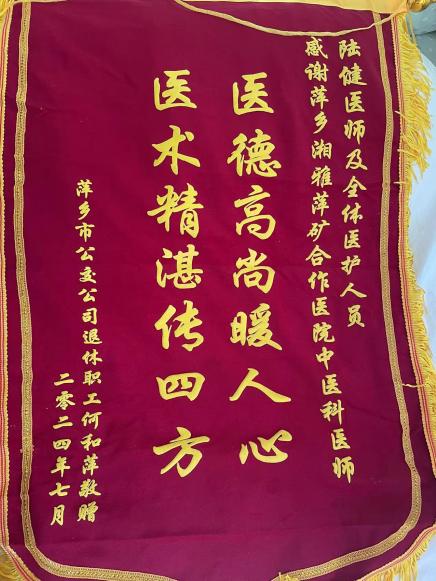 陆健医师及全体医护人员
感谢萍乡湘雅萍矿合作医院中医科医师
医德高尚暖人心
医术精湛传四方
萍乡市公交公司退休职工何和萍敬赠
二零二四年七月